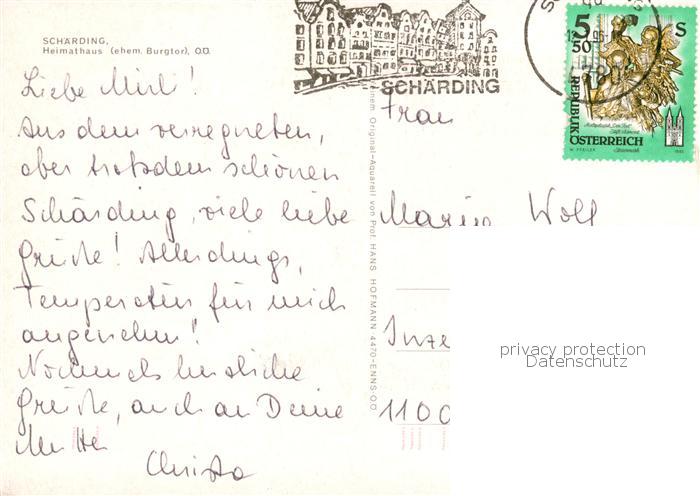 SCHÄRDING,
Heimathaus (ehem. Burgtor), OÖ
Liebe Mirl!
Aus dem verregneten,
aber trotzdem schönen
Schärding, viele liebe
Grüße! Allerdings,
Temperatur für mich
angenehm!
Nochmals herzliche
Grüße, auch an Deine
Mutter
Christa
SCHÄRDING
einem Original-Aquarell von Prof. HANS HOFMANN 4470-ENNS-OÖ
5 50 S
REPUBLIK ÖSTERREICH
Frau
Woll
Inze
1100
privacy protection
Datenschutz